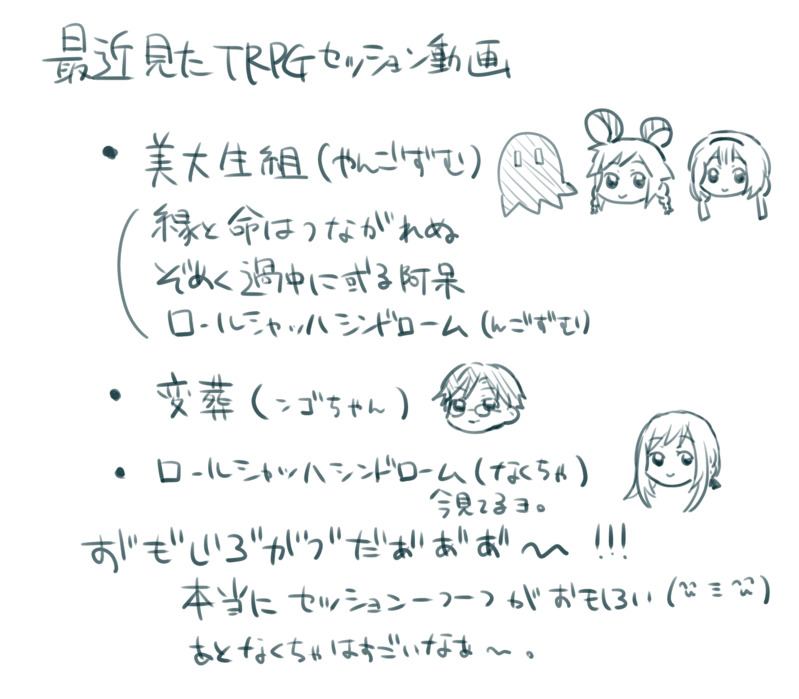 最近見たTRPGセッション動画
・美大生組(やんごずむ)
縁と命はつながれぬ
ぞめく過中に或る阿呆
ロールシャッハシンドローム(んごずむ)
・変葬(シゴちゃん)
・ロールシャッハシンドローム(なくちゃ)
今見てるヨ。
お゛も゛じろ゛がづだぁ゛ぁ゛ぁ゛〜!!!
本当にセッション一つ一つがおもしろい
あとなくちゃはすごいなぁ〜。